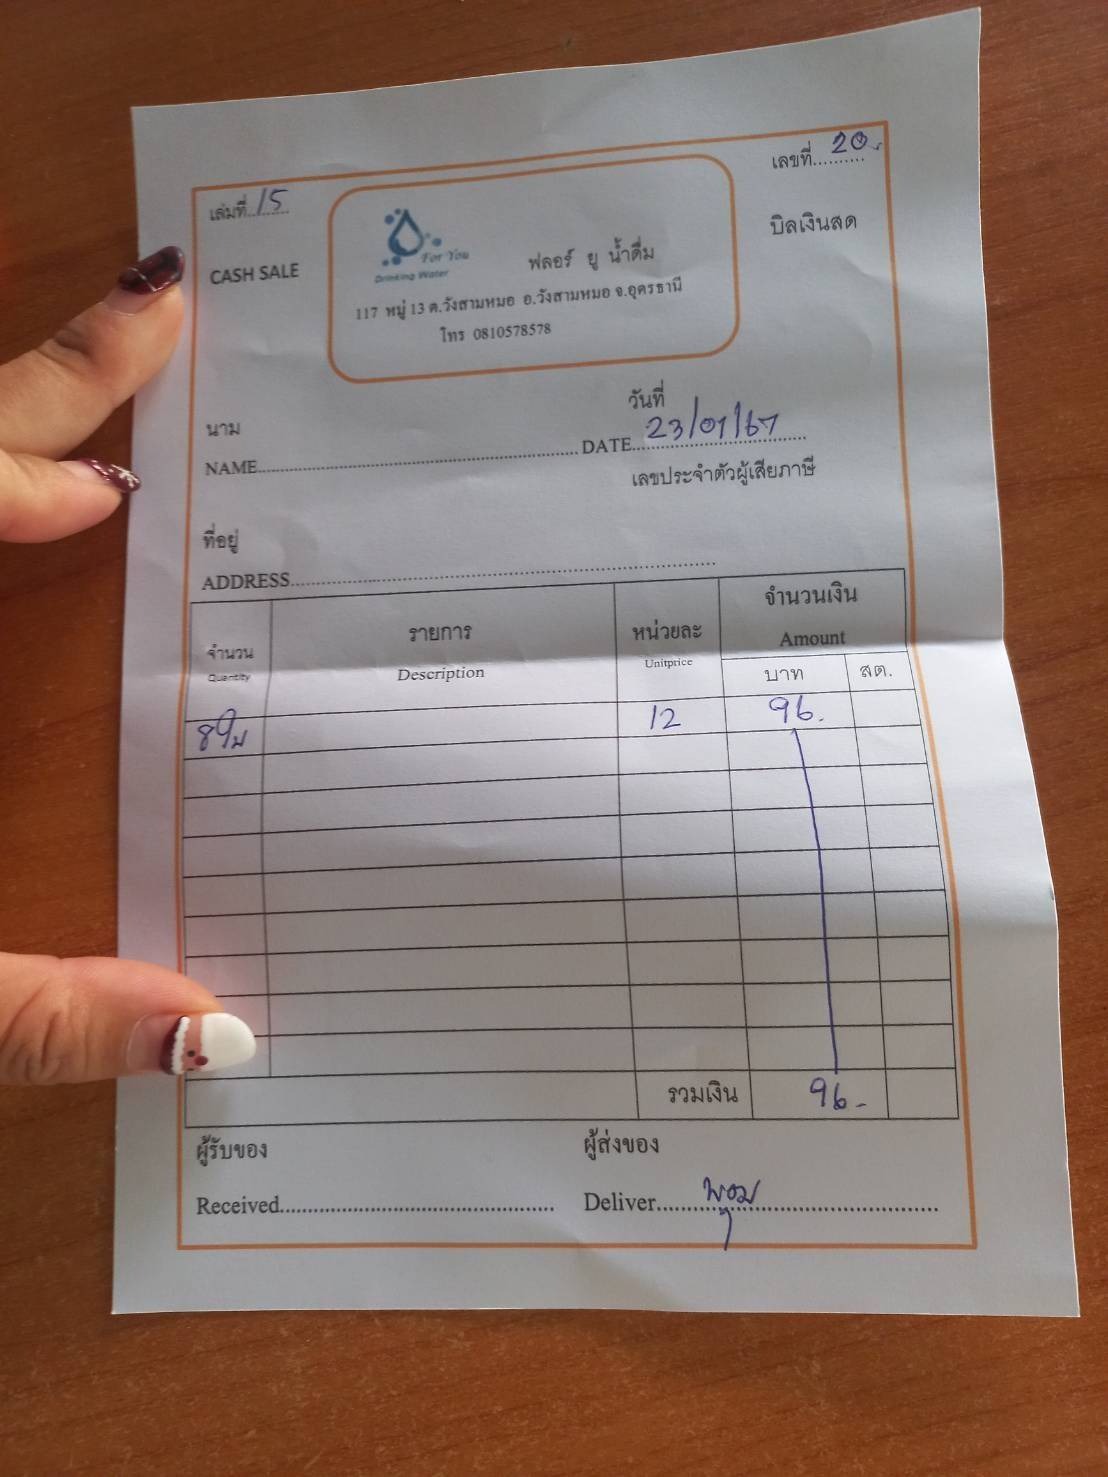 เล่มที่ 15
เลขที่ 20
CASH SALE
บิลเงินสด
For You
Drinking Water
ฟลอร์ ยู น้ำดื่ม
117 หมู่ 13 ต.วังสามหมอ อ.วังสามหมอ จ.อุดรธานี
โทร 0810578578
นาม
วันที่
NAME DATE 23/01/67
เลขประจำตัวผู้เสียภาษี
ที่อยู่
ADDRESS
จำนวน รายการ หน่วยละ จำนวนเงิน
Quantity Description Unitprice Amount
บาท สต.
8 ใบ 12 96.
รวมเงิน 96 -
ผู้รับของ ผู้ส่งของ
Received Deliver